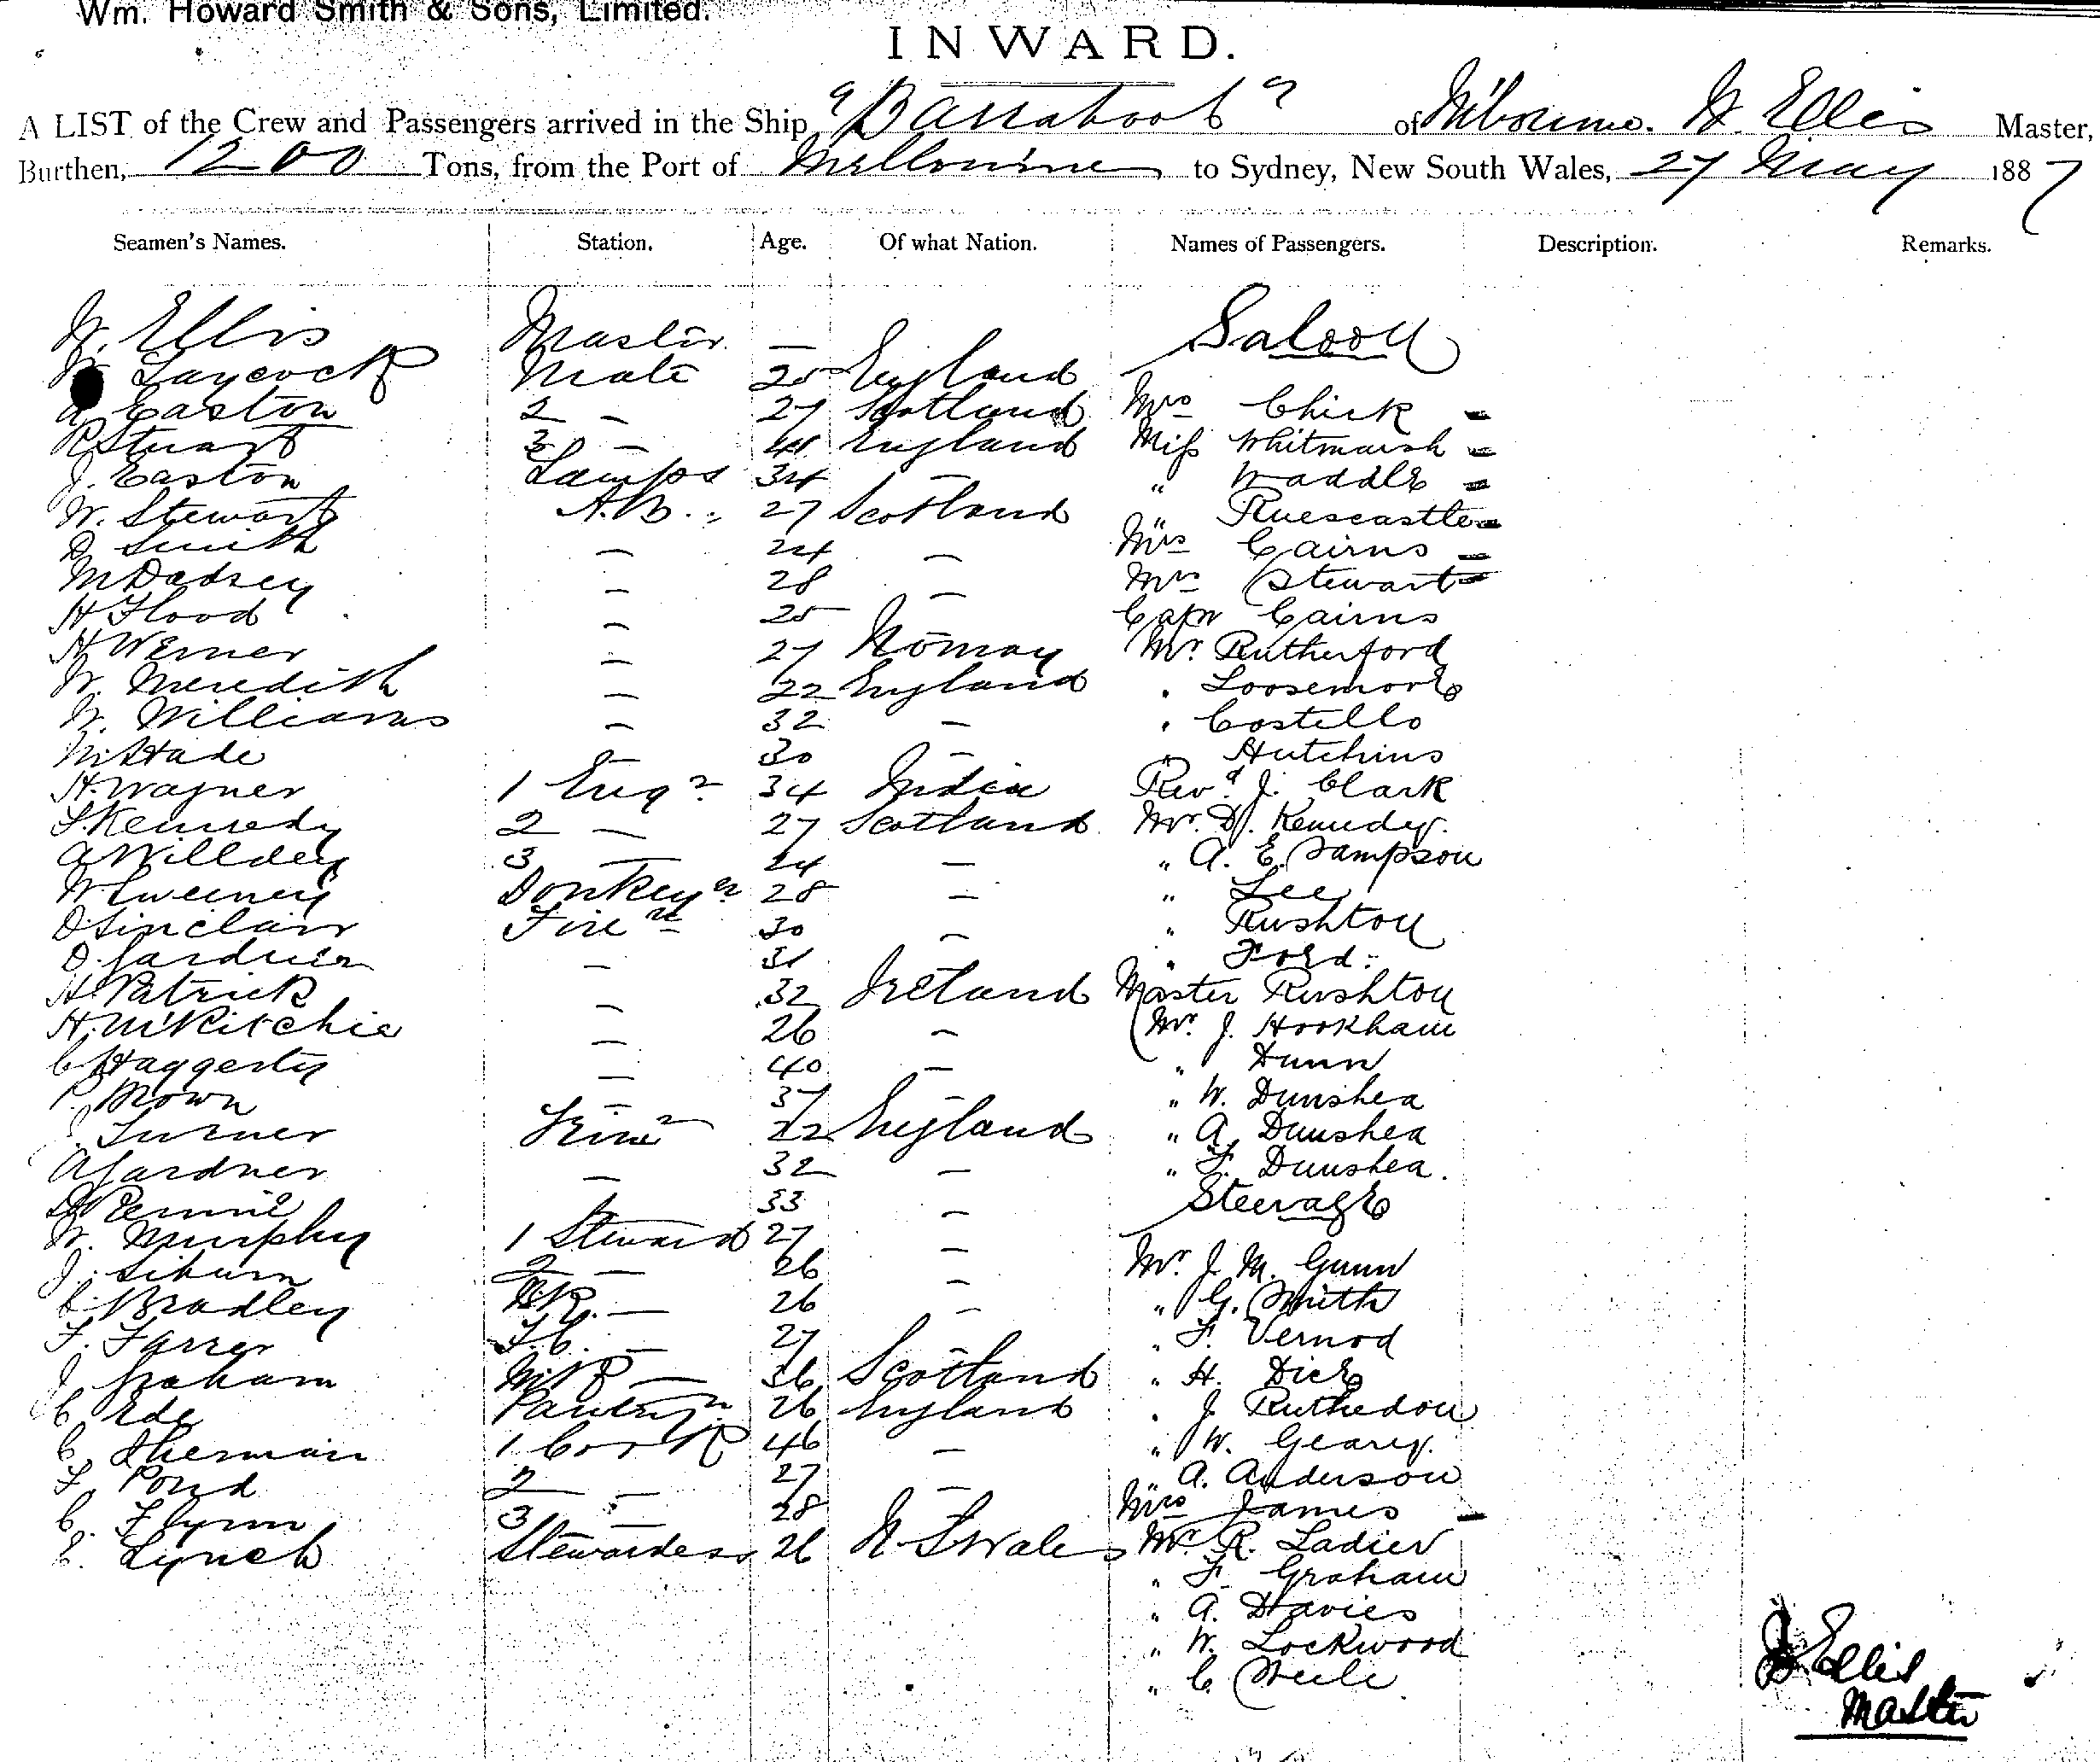 Wm. Howard Smith & Sons, Limited.
INWARD.
A LIST of the Crew and Passengers arrived in the Ship "Barrabool" of Mlbourne. W. Ellis Master,
Burthen, 1200 Tons, from the Port of Melbourne to Sydney, New South Wales, 27 May 1887
Seamen's Names. Station. Age. Of what Nation. Names of Passengers. Description. Remarks.
W. Ellis Master — Saloon
Laycock Mate 25 England
A Easton 2 — 27 Scotland Mrs Chick —
R Stuart 3 — 41 England Miss Whitmarsh —
J. Easton Lamps 34 — " Waddle —
W. Stewart A.B. 27 Scotland " Ruescastle —
D Smith — 24 — Mrs Cairns —
M Dadsey — 28 — Mrs Stewart —
H Flood — 25 Capn Cairns
H Werner — 27 Norway Mr. Rutherford
W. Meredith — 22 England " Loosemore
W. Williams — 32 — " Costello
M. Hade 30 — " Hutchins
H. Wagner 1 Engr 34 India Revd. J. Clark
Kennedy 2 — 27 Scotland Mr. D. Kennedy.
A Willdey 3 — 24 — " A. E. Sampson
W Sweeney Donkeyn 28 — " Lee
D Sinclair Firen 30 — " Rushton
D. Gardner — 31 " Ford.
H. Patrick — 32 Ireland Master Rushton
H. McRitchie — 26 — Mr. J. Hookham
C Haggerty — 40 — " Dunn
P. Brown — 37 — " W. Dunshea
Turner Trimr 22 England " A. Dunshea
A Gardner — 32 — " F. Dunshea.
D Rennie 33 — Steerage
W. Murphy 1 Steward 27 — Mr. J. M. Gunn
J. 2 — 26 — " G. Smith
C. Bradley — 26 — " F. Vernod
F. Farrer F.C. — 27 — " H. Dick
J Graham — 36 Scotland " J Ruthedon
C Ede Pantryn 26 England " W. Geary.
C. Sherman 1 Cook 46 — " A. Anderson
F. Pond 2 — 27 — Mrs James —
C. Flynn 3 — 28 Mr. R. Ladier
E. Lynch Stewardess 26 N S Wales " F. Graham
" A. Davies
" W. Lockwood
" C. Steele
J. Ellis
Master